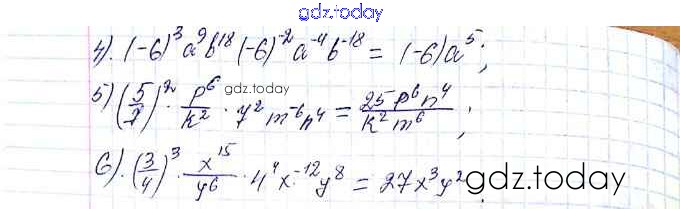 gdz.today
4). (-6)³a⁹b¹⁸(-6)⁻²a⁻⁴b⁻¹⁸ = (-6)a⁵;
5) (5/7)² · p⁶/k² · 7² m⁻⁶n⁴ = 25p⁶n⁴/k²m⁶;
gdz.today
6). (3/4)³ · x¹⁵/y⁶ · 4⁴x⁻¹²y⁸ = 27x³y²;
gdz.today